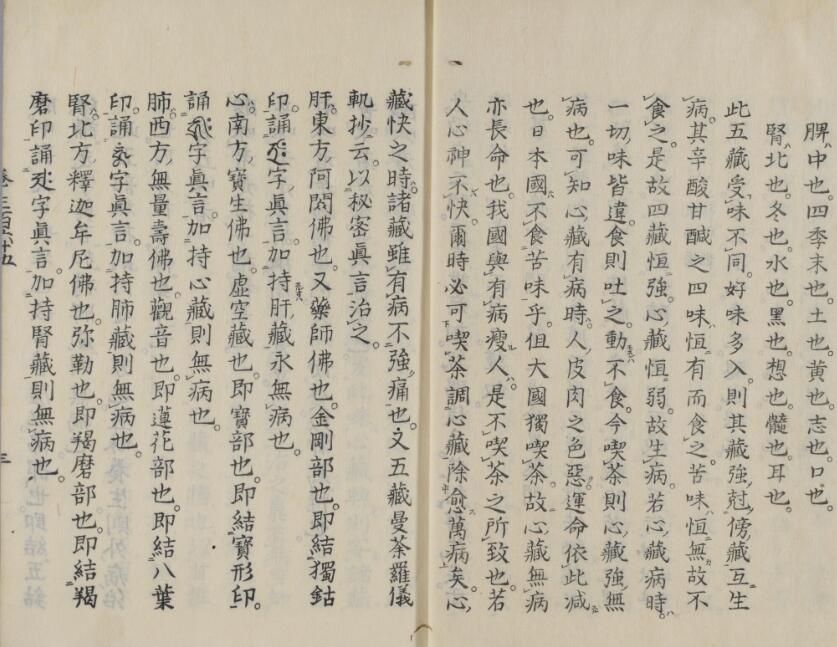 脾中也。四季末也。土也。黄也。志也。口也。
腎北也。冬也。水也。黑也。想也。髓也。耳也。
此五藏受味不同。好味多入則其藏強。尅傍藏互生
病。其辛酸甘醎之四味恒有而食之。苦味恒無故不
食之。是故四藏恒強。心藏恒弱。故生病。若心藏病時。
一切味皆違。食則吐之。動不食。今喫茶則心藏強無
病也。可知心藏有病時。人皮肉之色惡。運命依此减
也。日本國不食苦味乎。但大國獨喫茶。故心藏無病
亦長命也。我國與有病瘦人。是不喫茶之所致也。若
人心神不快。爾時必可喫茶調心藏除愈萬病矣。心
藏快之時。諸藏雖有病不強痛也。又五藏曼荼羅儀
軌抄云。以秘密眞言治之。
肝東方。阿閦佛也。又藥師佛也。金剛部也。即結獨鈷
印。誦字眞言。加持肝藏永無病也。
心南方。寶生佛也。虛空藏也。即寶部也。即結寶形印。
誦字眞言。加持心藏則無病也。
肺西方。無量壽佛也。觀音也。即蓮花部也。即結八葉
印。誦字眞言。加持肺藏則無病也。
腎北方。釋迦牟尼佛也。弥勒也。即羯磨部也。即結羯
磨印誦字眞言。加持腎藏則無病也。